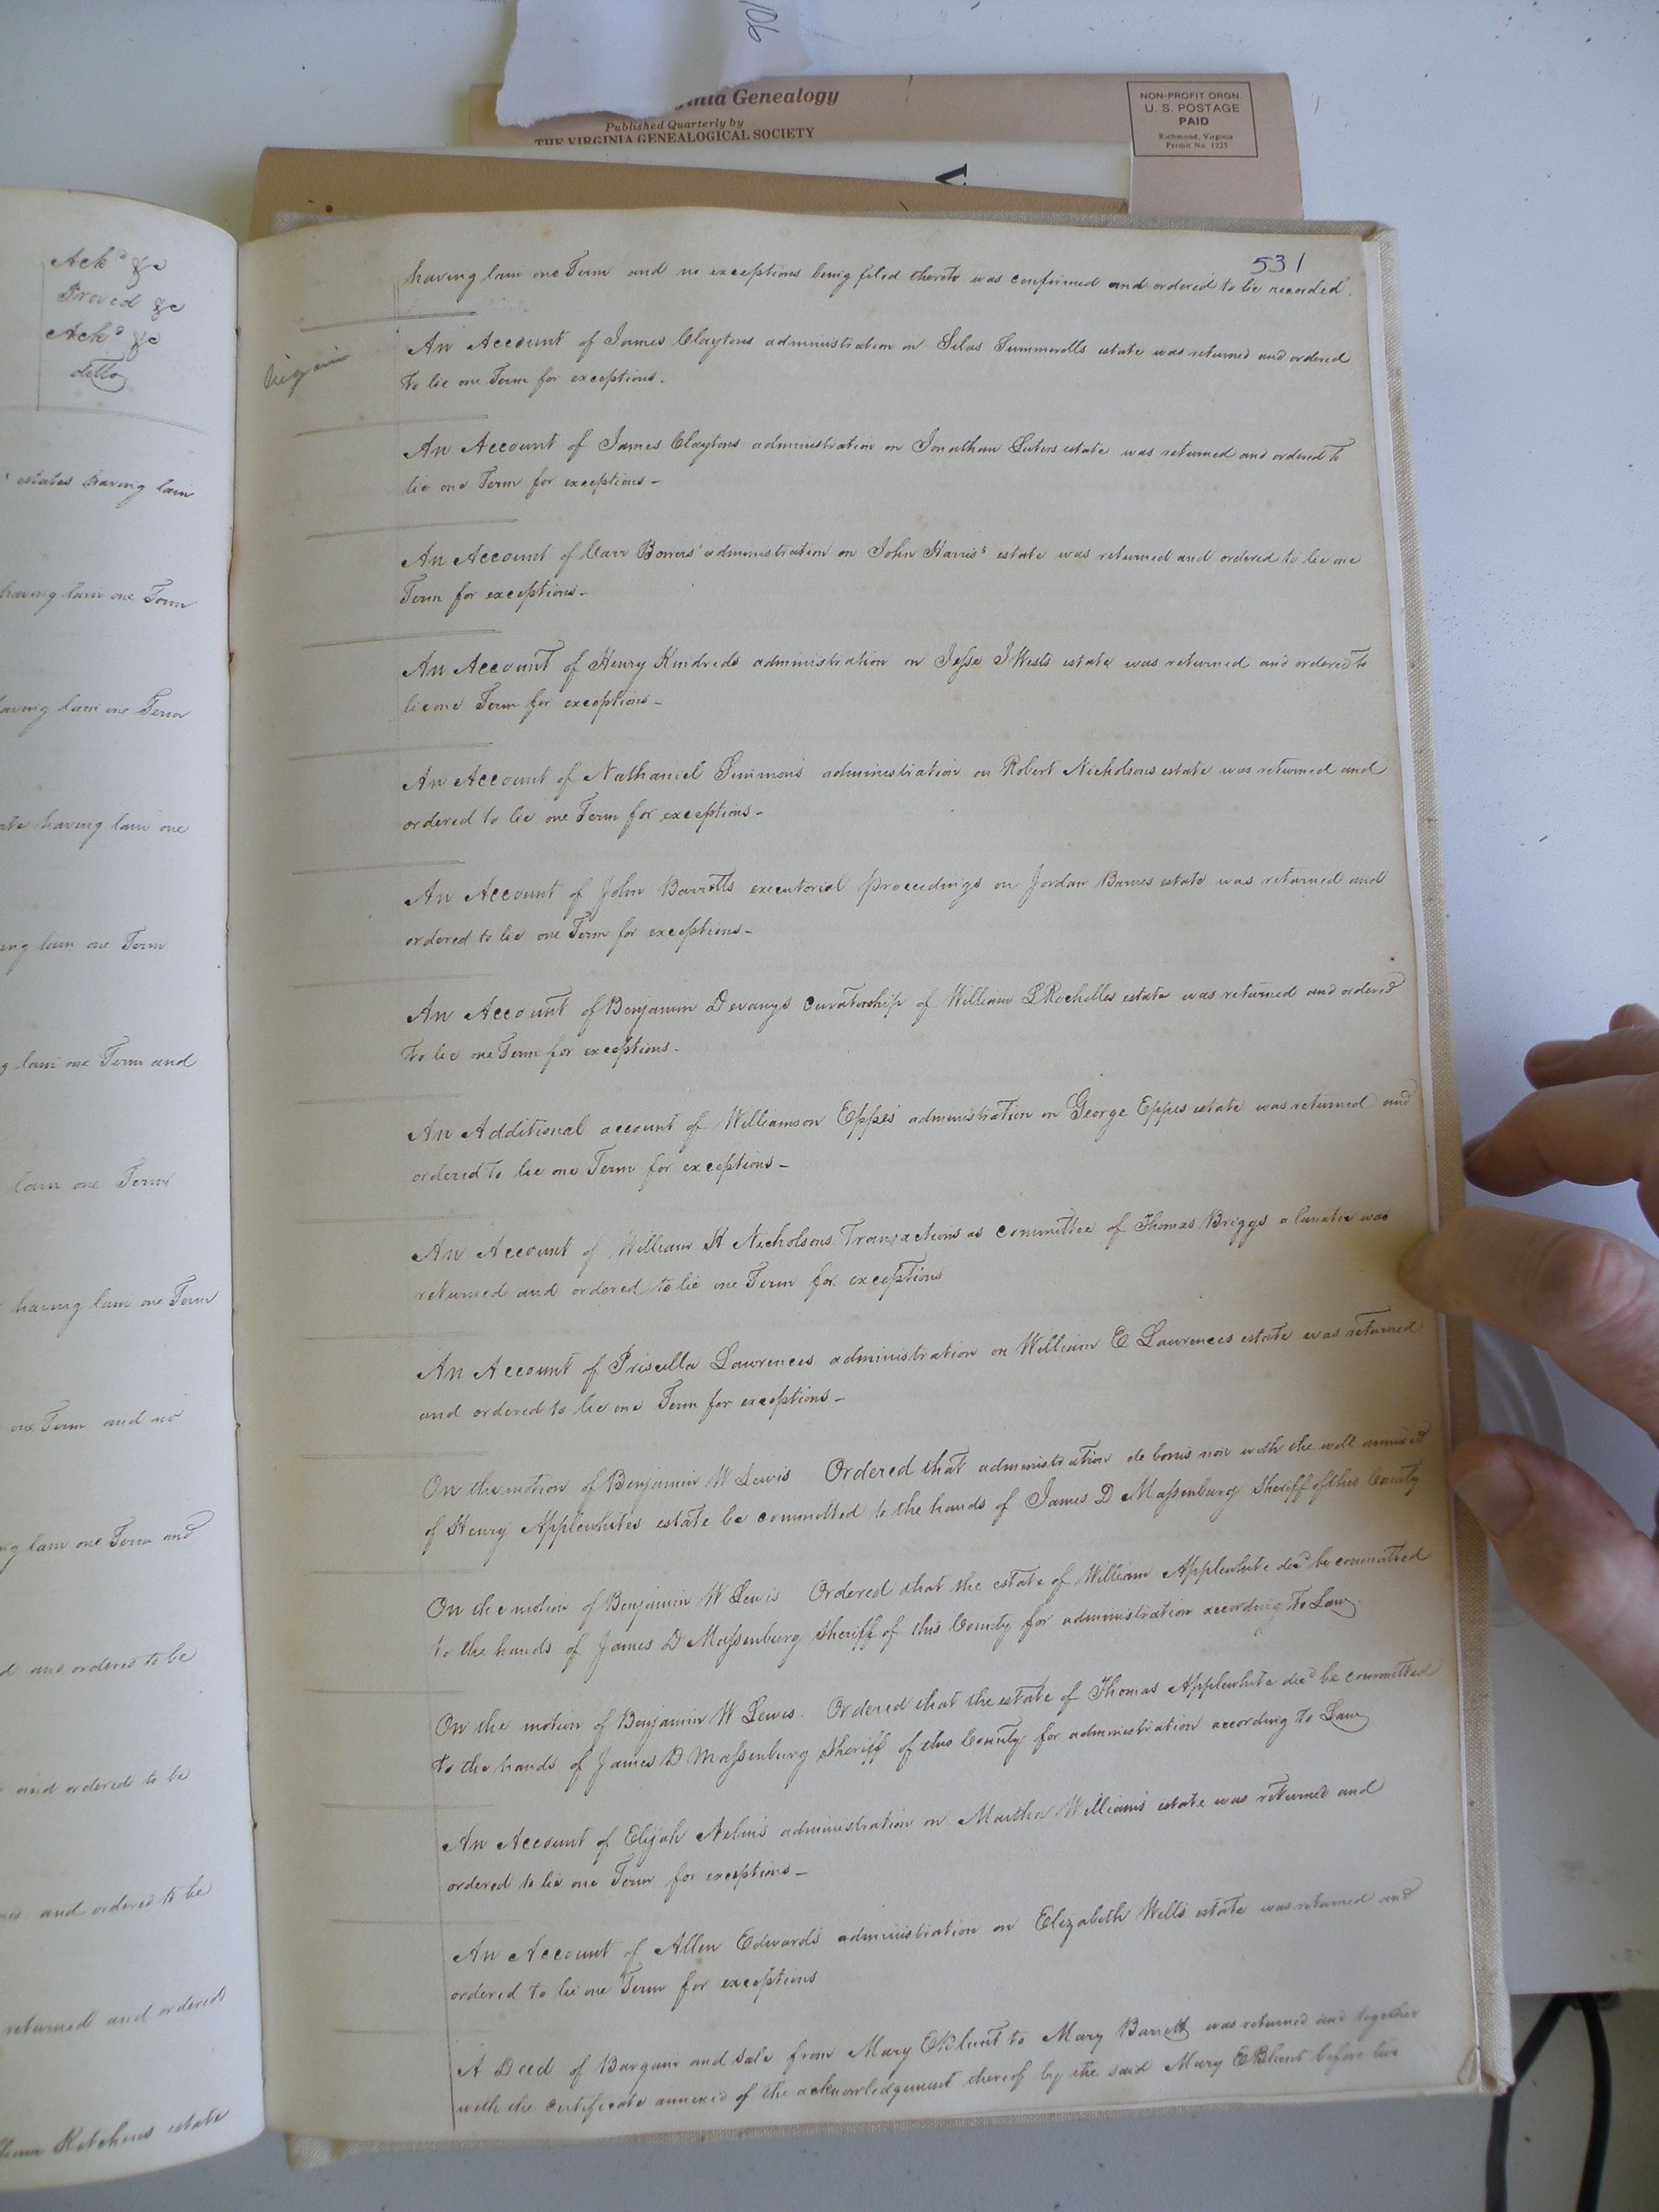 106
Virginia Genealogy
Published Quarterly by
THE VIRGINIA GENEALOGICAL SOCIETY
NON-PROFIT ORGN.
U. S. POSTAGE
PAID
Richmond, Virginia
Permit No. 1225
V
Ackd &c
Proved &c
Ackd &c
ditto
estates having lain
having lain one Term
having lain one Term
having lain one
lain one Term
lain one Term and
lain one Term
having lain one Term
one Term and no
lain one Term and
and ordered to be
and ordered to be
and ordered to be
returned and ordered
Kitchens estate
531
having lain one Term and no exceptions being filed thereto was confirmed and ordered to be recorded.
An Account of James Claytons administration on Silas Summerells estate was returned and ordered
to lie one Term for exceptions.
An Account of James Claytons administration on Jonathan Luters estate was returned and ordered to
lie one Term for exceptions-
An Account of Carr Bowers' administration on John Harris's estate was returned and ordered to lie one
Term for exceptions-
An Account of Henry Kindreds administration on Jesse J Wests estate was returned and ordered to
lie one Term for exceptions-
An Account of Nathaniel Simmons administration on Robert Nicholsons estate was returned and
ordered to lie one Term for exceptions-
An Account of John Barretts executorial proceedings on Jordan Barnes estate was returned and
ordered to lie one Term for exceptions-
An Account of Benjamin Devanys Curatorship of William L Rochelles estate was returned and ordered
to lie one Term for exceptions-
An Additional account of Williamson Eppes' administration on George Eppes estate was returned and
ordered to lie one Term for exceptions-
An Account of William H Nicholsons Transactions as Committee of Thomas Briggs a lunatic was
returned and ordered to lie one Term for exceptions
An Account of Priscilla Lawrences administration on William E Lawrences estate was returned
and ordered to lie one Term for exceptions-
On the motion of Benjamin W Lewis Ordered that administration de bonis non with the will annexed
of Henry Applewhites estate be committed to the hands of James D Massenburg Sheriff of this County
On the motion of Benjamin W Lewis Ordered that the estate of William Applewhite decd be committed
to the hands of James D Massenburg Sheriff of this County for administration according to Law
On the motion of Benjamin W Lewis. Ordered that the estate of Thomas Applewhite decd be committed
to the hands of James D Massenburg Sheriff of this County for administration according to Law
An Account of Elijah Nelms administration on Martha Williams estate was returned and
ordered to lie one Term for exceptions-
An Account of Allen Edwards administration on Elizabeth Wells estate was returned and
ordered to lie one Term for exceptions
A Deed of Bargain and Sale from Mary E Blunt to Mary Barrett was returned and together
with the certificate annexed of the acknowledgement thereof by the said Mary E Blunt before two